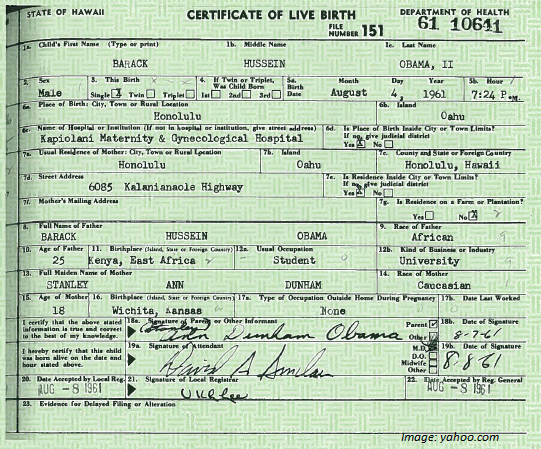 STATE OF HAWAII CERTIFICATE OF LIVE BIRTH DEPARTMENT OF HEALTH
FILE NUMBER 151 61 10641
1a. Child's First Name (Type or print) 1b. Middle Name 1c. Last Name
BARACK HUSSEIN OBAMA, II
2. Sex 3. This Birth 4. If Twin or Triplet, Was Child Born 5a. Birth Date Month Day Year 5b. Hour
Male Single X Twin Triplet 1st 2nd 3rd August 4, 1961 7:24 P.M.
6a. Place of Birth: City, Town or Rural Location 6b. Island
Honolulu Oahu
6c. Name of Hospital or Institution (If not in hospital or institution, give street address) 6d. Is Place of Birth Inside City or Town Limits? If no, give judicial district
Kapiolani Maternity & Gynecological Hospital Yes X No
7a. Usual Residence of Mother: City, Town or Rural Location 7b. Island 7c. County and State or Foreign Country
Honolulu Oahu Honolulu, Hawaii
7d. Street Address 7e. Is Residence Inside City or Town Limits? If no, give judicial district
6085 Kalanianaole Highway Yes X No
7f. Mother's Mailing Address 7g. Is Residence on a Farm or Plantation?
Yes No X
8. Full Name of Father 9. Race of Father
BARACK HUSSEIN OBAMA African
10. Age of Father 11. Birthplace (Island, State or Foreign Country) 12a. Usual Occupation 12b. Kind of Business or Industry
25 Kenya, East Africa Student University
13. Full Maiden Name of Mother 14. Race of Mother
STANLEY ANN DUNHAM Caucasian
15. Age of Mother 16. Birthplace (Island, State or Foreign Country) 17a. Type of Occupation Outside Home During Pregnancy 17b. Date Last Worked
18 Wichita, Kansas None
I certify that the above stated information is true and correct to the best of my knowledge. 18a. Signature of Parent or Other Informant Parent Other 18b. Date of Signature
(Stanley) Ann Dunham Obama 8-7-61
I hereby certify that this child was born alive on the date and hour stated above. 19a. Signature of Attendant M.D. D.O. Midwife Other 19b. Date of Signature
David A Sinclair 8-8-61
20. Date Accepted by Local Reg. 21. Signature of Local Registrar 22. Date Accepted by Reg. General
AUG -8 1961 AUG -8 1961
23. Evidence for Delayed Filing or Alteration
Image: yahoo.com